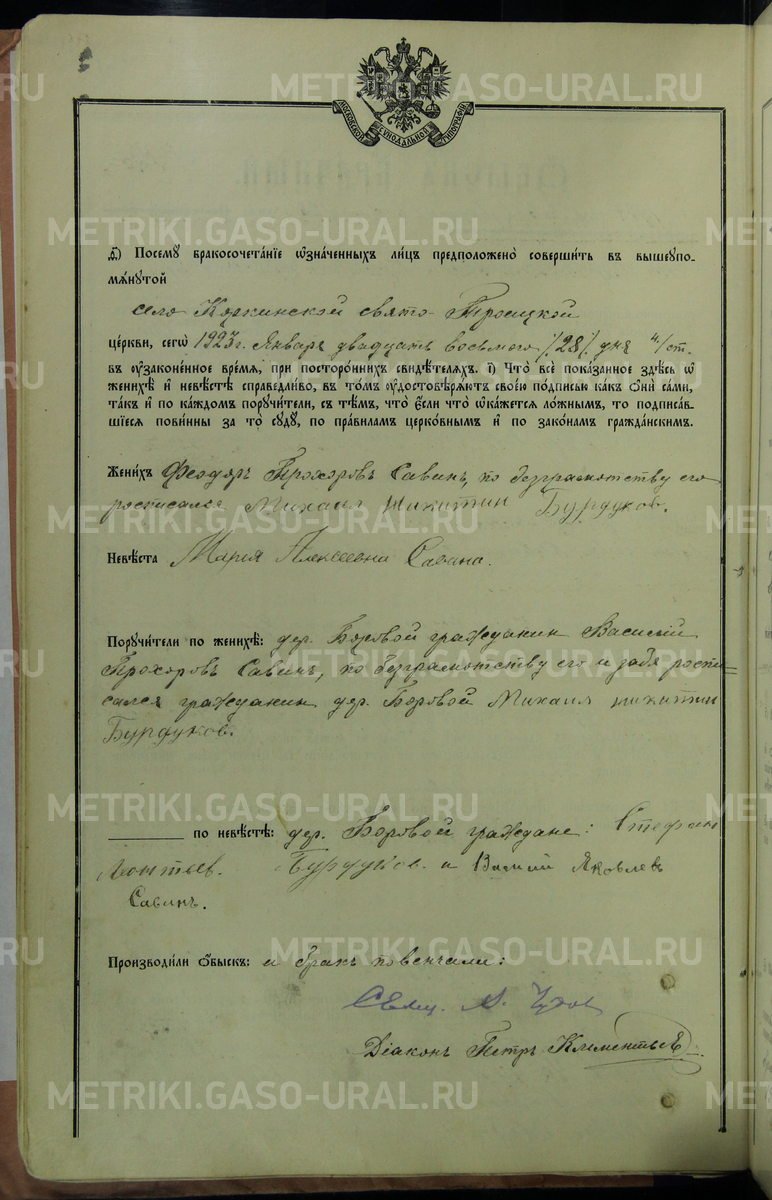 METRIKI.GASO-URAL.RU
МОСКОВСКОЙ СѴНОДАЛЬНОЙ ТИПОГРАФІИ
ѕ҃) Посемꙋ бракосочета́нїе ѡ҆зна́ченныхъ ли́цъ предположено̀ соверши́ть въ вышеꙋпо-
мѧ́нꙋтой
село Коркинской свято-Троицкой
це́ркви, сегѡ̀ 1923 г. Января двадцать восьмого /28/ дня н/ст.
въ ᲂу҆зако́ненное вре́мѧ, при посторо́ннихъ свидѣ́телѧхъ. з҃) Что̀ всѐ пока́занное здѣ́сь ѡ҆
женихѣ̀ и҆ невѣ́стѣ справедли́во, въ то́мъ ᲂу҆достовѣрѧ́ютъ свое́ю по́дписью ка́къ ѻ҆нѝ са́ми,
та́къ и҆ по ка́ждомъ порꙋчи́тели, съ тѣ́мъ, что̀ є҆́сли что̀ ѡ҆ка́жетсѧ ло́жнымъ, то подписа́в-
шїесѧ пови́нны за то̀ сꙋдꙋ̀, по пра́виламъ церко́внымъ и҆ по зако́намъ гражда́нскимъ.
Жени́хъ Феодоръ Прохоровъ Савинъ, по безграмотству его
росписался Михаил Микитин Бурдуков.
Невѣ́ста Мария Алексеевна Савина.
Порꙋчи́тели по женихѣ̀: дер. Боровой гражданин Василий
Прохоровъ Савинъ, по безграмотству его и за себя роспи-
сался гражданин дер. Боровой Михаил Микитин
Бурдуков.
по невѣ́стѣ: дер. Боровой граждане: Стефан
Леонтьев. Бурдуков. и Яковлевъ
Савинъ.
Производи́ли ѻ҆́быскъ: и бракъ повенчали:
Діаконъ Петръ Климентьев